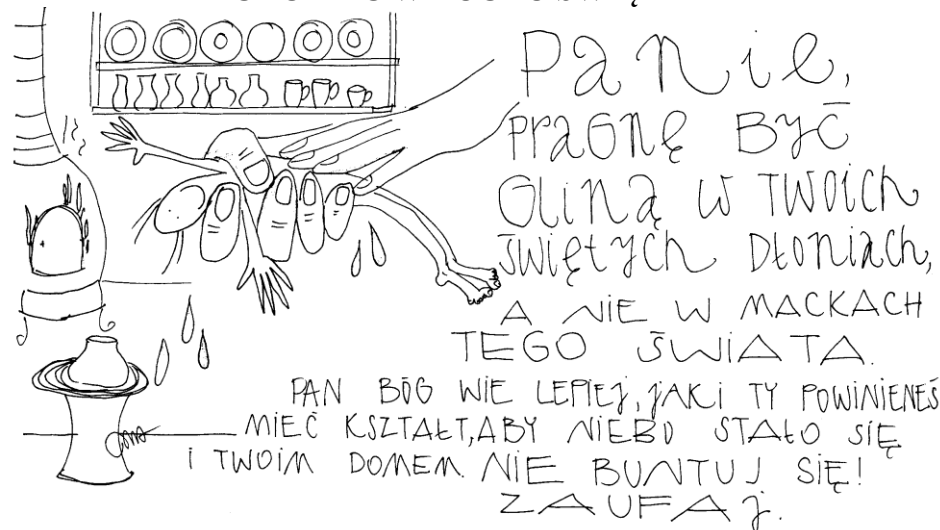 Panie,
PRAGNĘ BYĆ
GLINĄ W TWOICH
ŚWIĘTYCH DŁONIACH,
A NIE W MACKACH
TEGO ŚWIATA.
PAN BÓG WIE LEPIEJ, JAKI TY POWINIENEŚ
MIEĆ KSZTAŁT, ABY NIEBO STAŁO SIĘ
I TWOIM DOMEM. NIE BUNTUJ SIĘ!
ZAUFAJ.